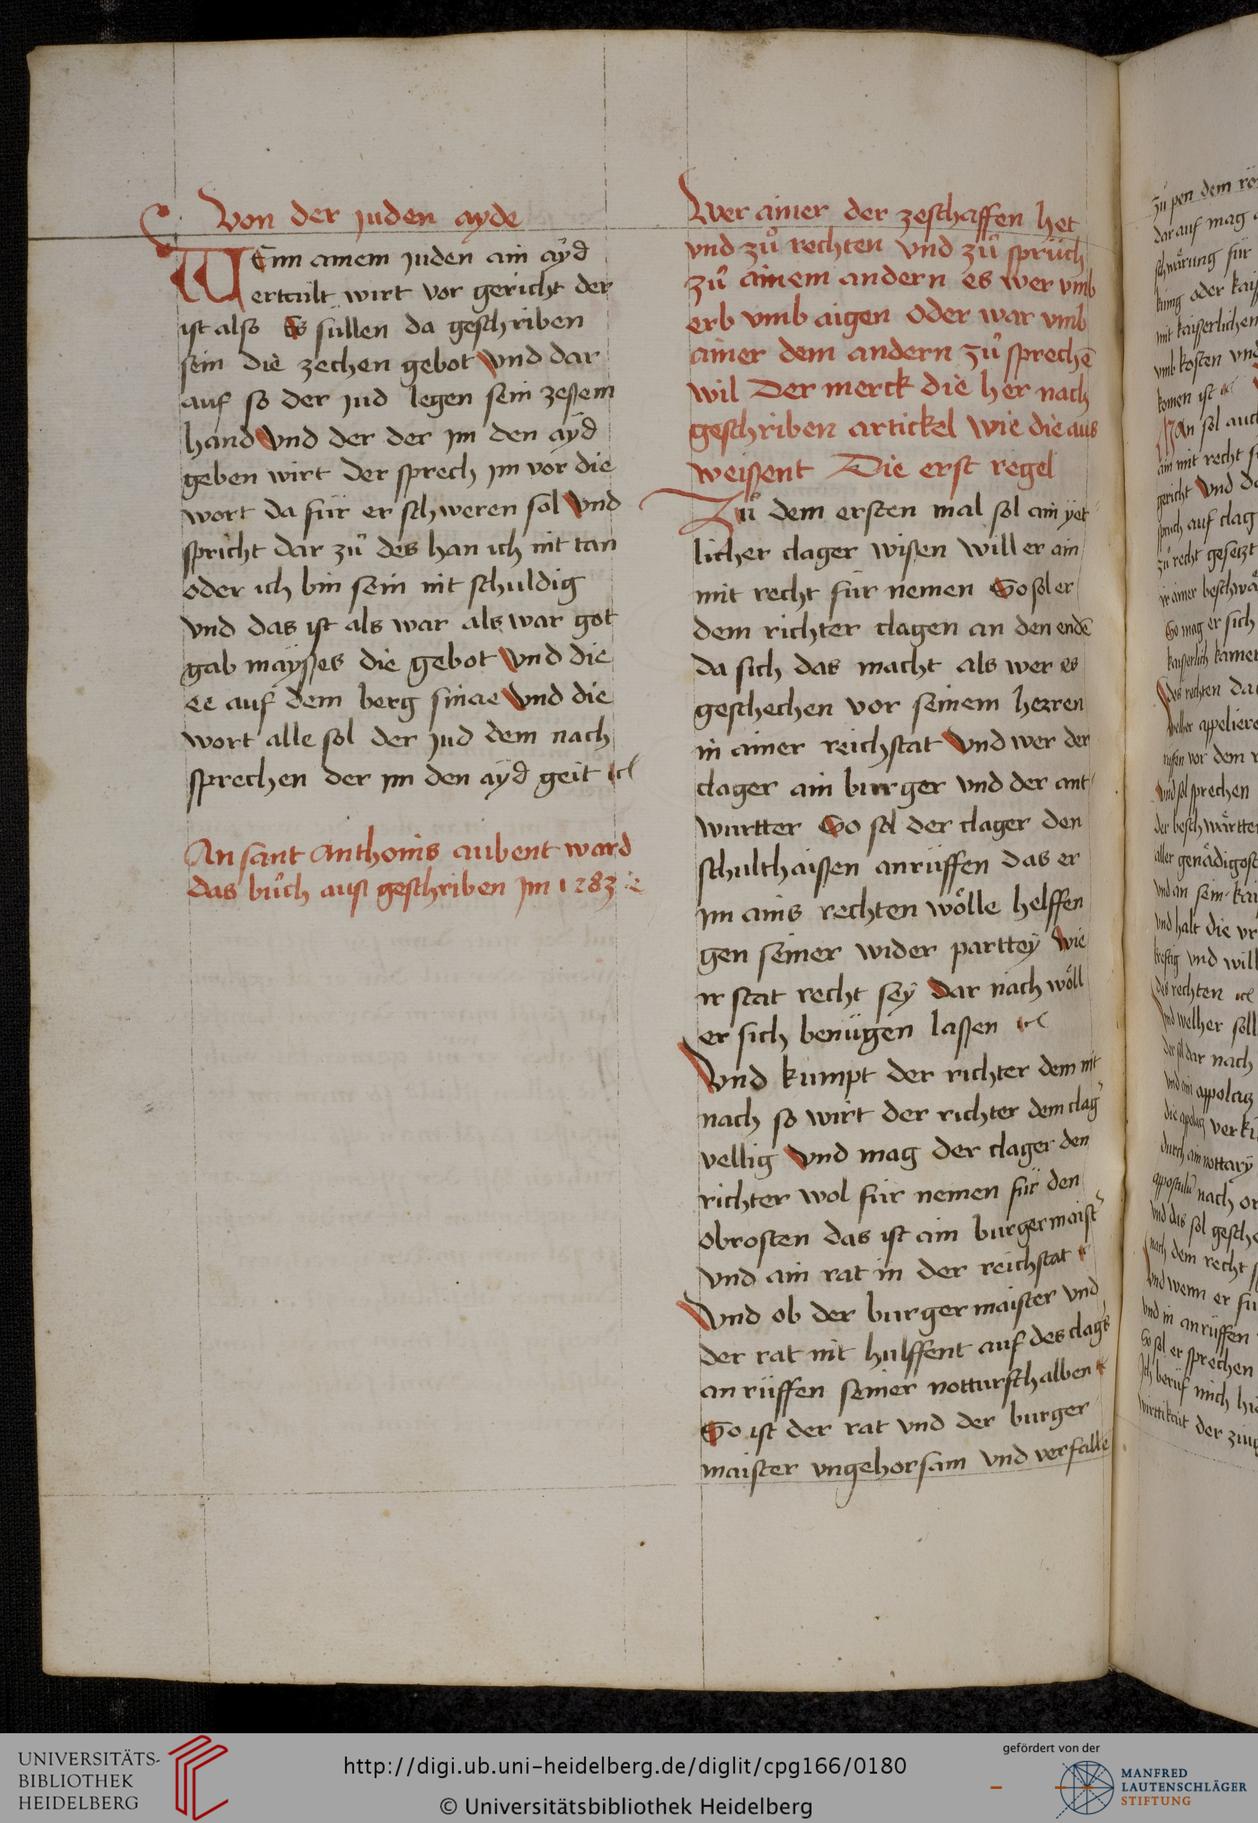 Von der juden ayde
WEnn ainem juden ain aÿd
ertailt wirt vor gericht der
ist also Es sullen da geschriben
sein die zechen gebot Vnd dar
auf so der jud legen sein zesem
hand Vnd der der im den aÿd
geben wirt der sprech im vor die
wort da für er schweren sol Vnd
spricht dar zů des han ich nit tan
oder ich bin sein nit schuldig
vnd das ist als war als war got
gab maÿsses die gebot Vnd die
ee auf dem berg sinae Vnd die
wort alle sol der jud dem nach
sprechen der im den aÿd geit ⁊c
An sant Anthonis aubent ward
das bůch aust geschriben jm 1283
Wer ainer der zeschaffen het
vnd zů rechten vnd zů sprüch
zů ainem andern es wer vmb
erb vmb aigen Oder war vmb
ainer dem andern zů sprechē
wil Der merck die her nach
geschriben artickel Wie die aus
weissent Die erst regel
Zů dem ersten mal sol ain yet
licher clager wissen Will er ain
mit recht für nemen So sol er
dem richter clagen an den endē
da sich das macht als wer es
geschechen vor seinem herren
in ainer reichstat Vnd wer der
clager ain burger vnd der ant
wurtter So sol der clager den
schulthaissen anrüffen das er
im ains rechten wölle helffen
gen seiner wider partteÿ Wie
ir stat recht seÿ Dar nach wöll
er sich benügen lassen ⁊c
Vnd kumpt der richter dem nit
nach so wirt der richter dem clag
vellig Vnd mag der clager den
richter wol für nemen für den
obrosten das ist ain burgermaist
vnd ain rat in der reichstat
Vnd ob der burgermaister vnd
der rat nit hulffent auf des clags
anrüffen seiner notturfft halben
So ist der rat vnd der burger
maister vngehorsam vnd verfalle
zů pen dem rö
dar auf mag
schwärung für
küng oder kais
mit kaisserlichen
vmb kosten vnd
komen ist ⁊c
Man sol auch
ain mit recht
gericht Vnd
spruch auf clag
zů recht gesetzt
ir ainer beschwä
So mag er sich
kaisserlich kamer
des rechten da
weller appeliere
rüffen vor dem
vnd sol sprechen
der beschwärtte
aller genädigost
vnd an sein kai
vnd halt die vr
kreftig vnd will
des rechten ⁊c
Vnd welher soll
der sol dar nach
vnd ain appolcuz
ver
durch ain nottary
nach or
vnd das sol gesche
nach dem recht
Vnd wenn er fü
vnd in anrüffen
So sol er sprechen
Ich beruf mich hie
wirttikait der
UNIVERSITÄTS-
BIBLIOTHEK
HEIDELBERG
http://digi.ub.uni-heidelberg.de/diglit/cpg166/0180
© Universitätsbibliothek Heidelberg
gefördert von der
MANFRED
LAUTENSCHLÄGER
STIFTUNG